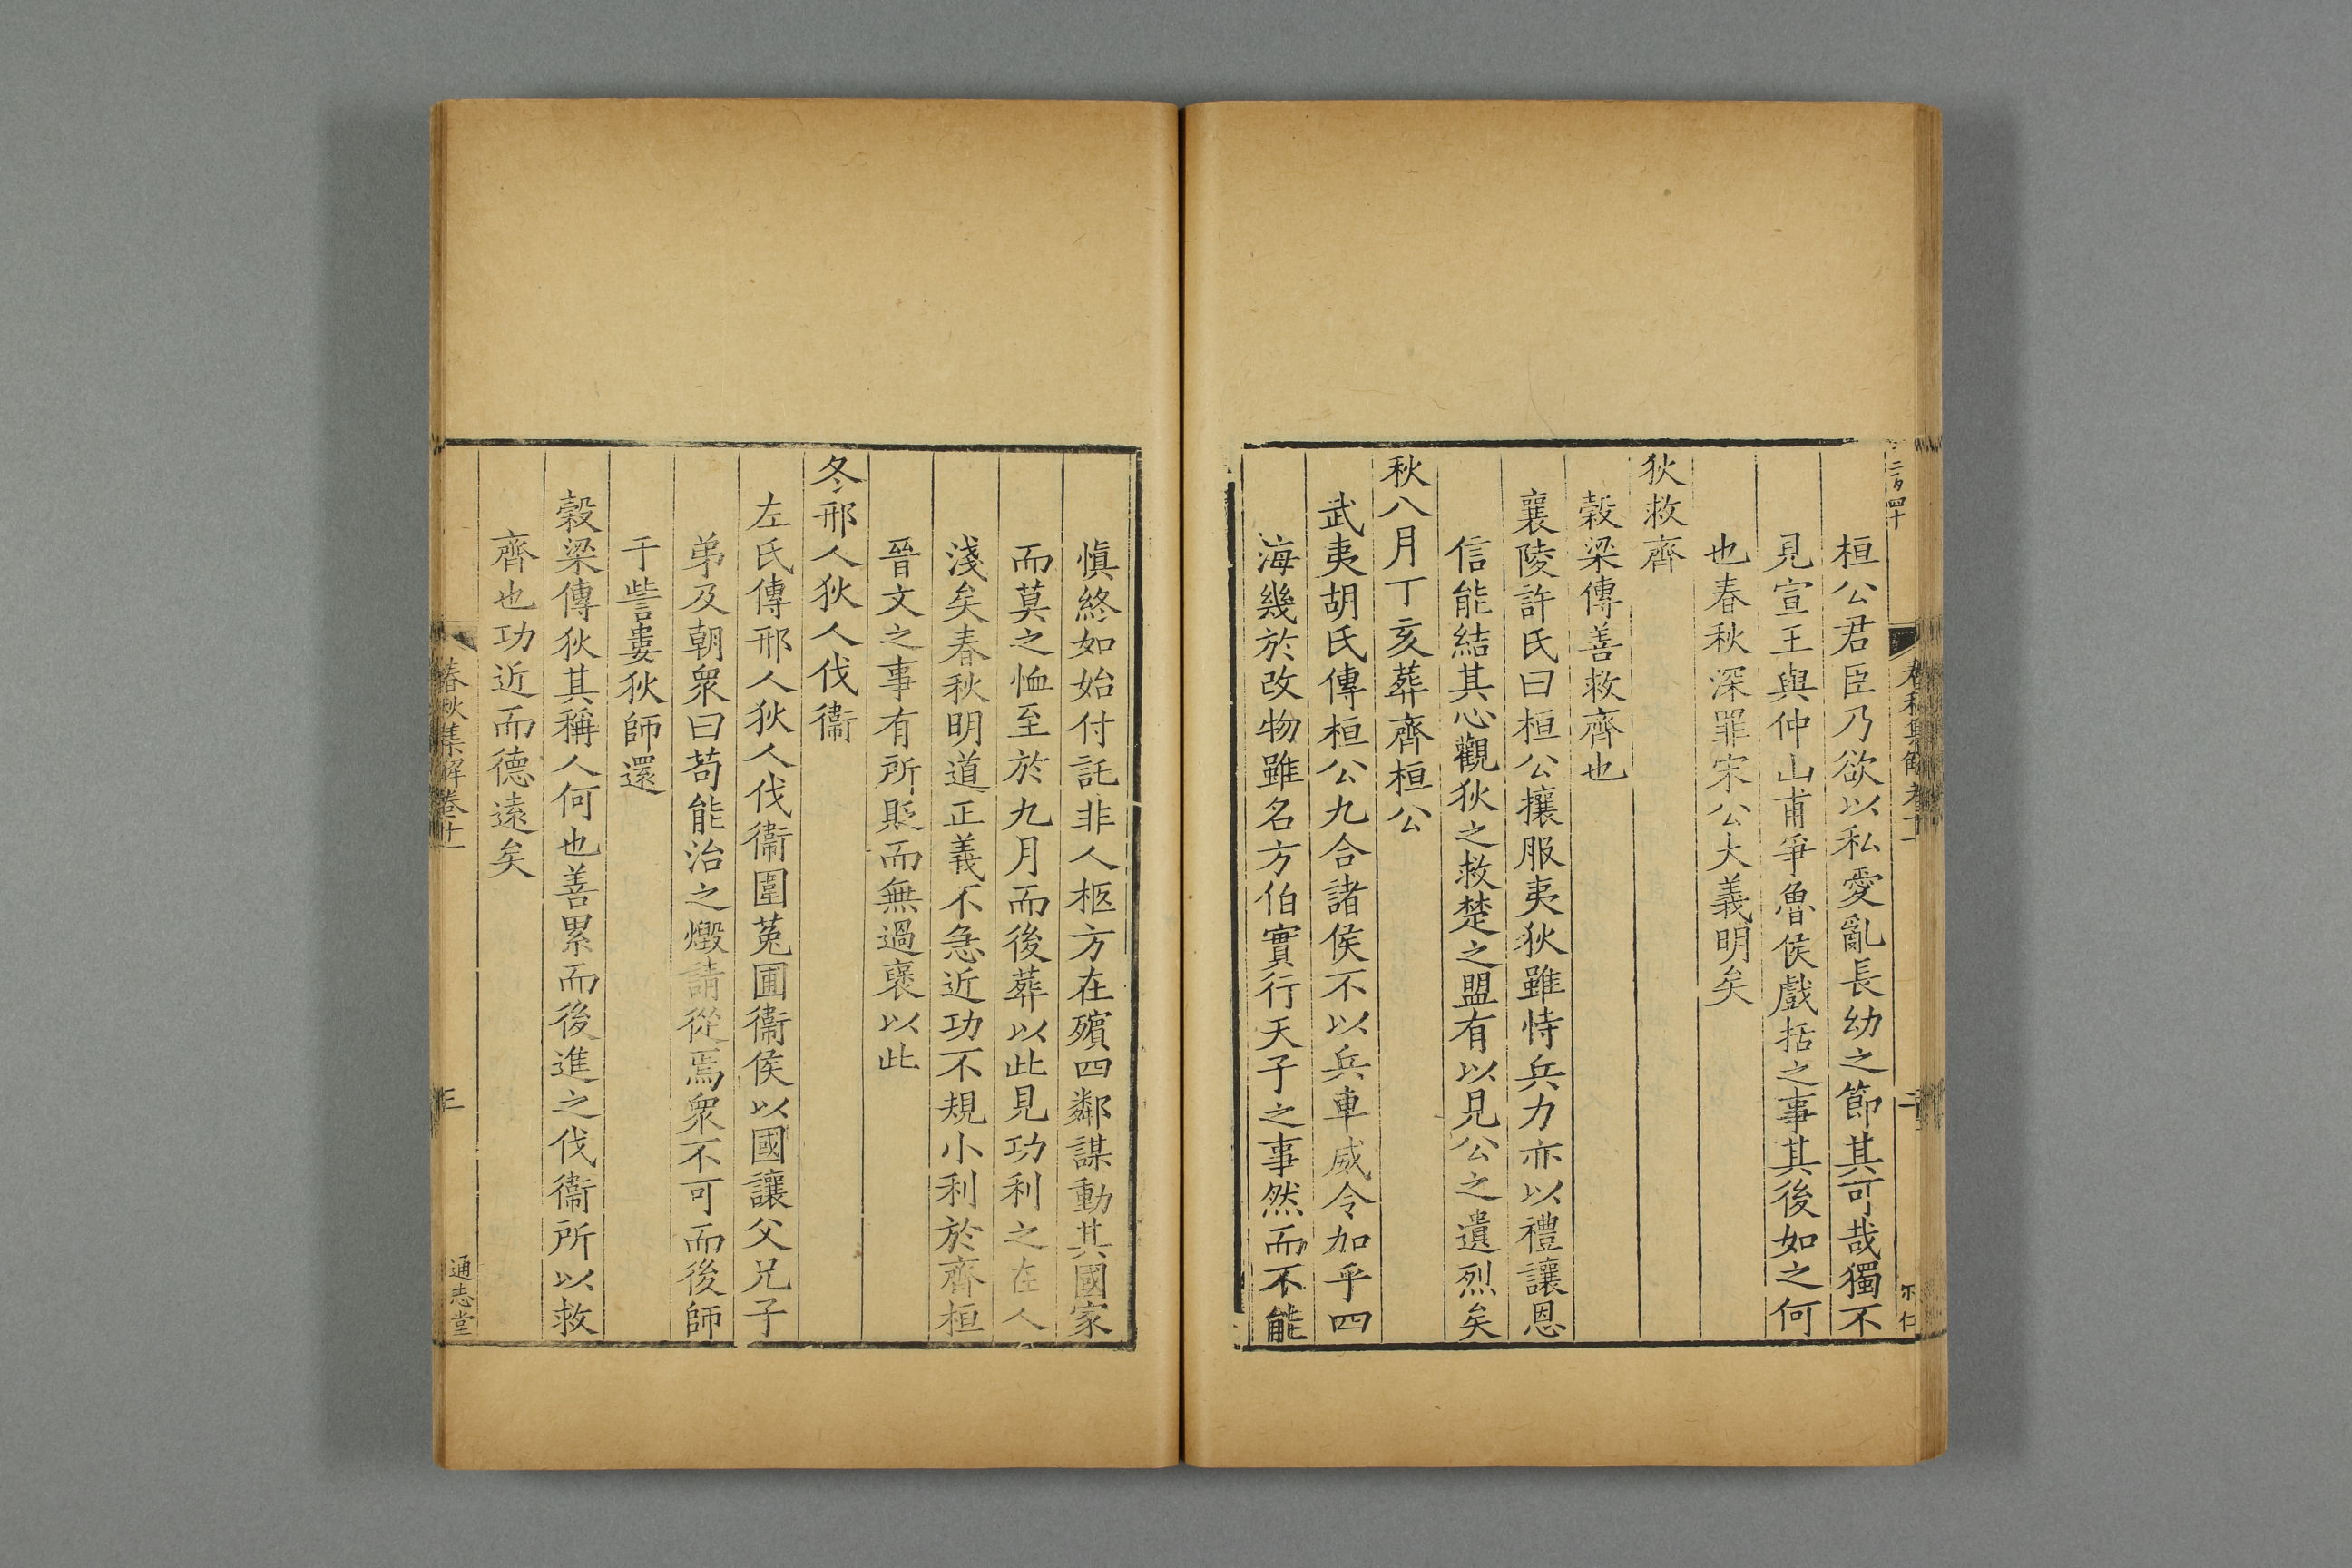 桓公君臣乃欲以私愛亂長幼之節其可哉獨不
見宣王與仲山甫爭魯侯戲括之事其後如之何
也春秋深罪宋公大義明矣
狄救齊
穀梁傳善救齊也
襄陵許氏曰桓公攘服夷狄雖恃兵力亦以禮讓恩
信能結其心觀狄之救楚之盟有以見公之遺烈矣
秋八月丁亥葬齊桓公
武夷胡氏傳桓公九合諸侯不以兵車威令加乎四
海幾於改物雖名方伯實行天子之事然而不能
愼終如始付託非人柩方在殯四鄰謀動其國家
而莫之恤至於九月而後葬以此見功利之在人
淺矣春秋明道正義不急近功不規小利於齊桓
晉文之事有所貶而無過褒以此
冬邢人狄人伐衞
左氏傳邢人狄人伐衞圍菟圃衞侯以國讓父兄子
弟及朝衆曰苟能治之燬請從焉衆不可而後師
于訾婁狄師還
穀梁傳狄其稱人何也善累而後進之伐衞所以救
齊也功近而德遠矣
春秋集解卷十一
三
通志堂